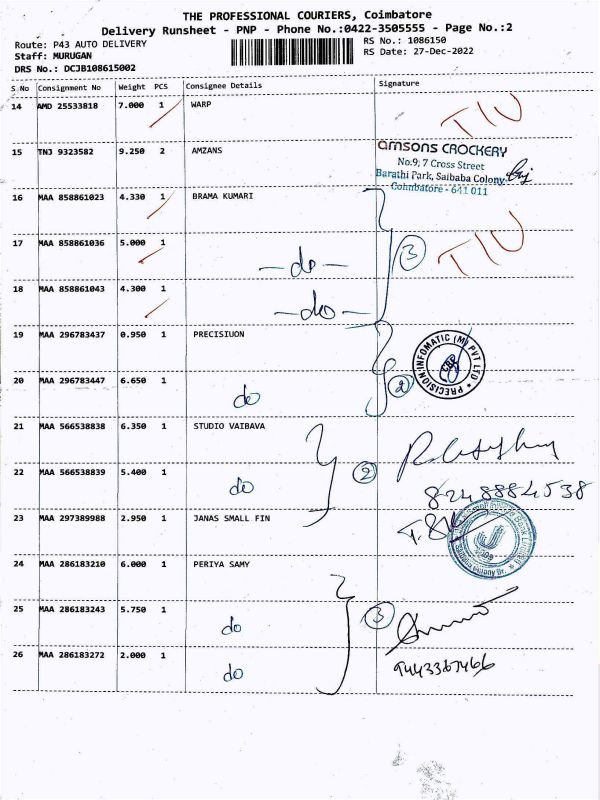 THE PROFESSIONAL COURIERS, Coimbatore
Delivery Runsheet - PNP - Phone No.:0422-3505555 - Page No.:2
Route: P43 AUTO DELIVERY
RS No.: 1086150
Staff: MURUGAN
RS Date: 27-Dec-2022
DRS No.: DCJB108615002
S No Consignment No Weight PCS Consignee Details Signature
14 AMD 25533818 7.000 1 WARP
15 TNJ 9323582 9.250 2 AMZANS
amsons CROCKERY
No.9, 7 Cross Street
Barathi Park, Saibaba Colony
Coimbatore - 641 011
16 MAA 858861023 4.330 1 BRAMA KUMARI
17 MAA 858861036 5.000 1
- do - 3
18 MAA 858861043 4.300 1
- do -
19 MAA 296783437 0.950 1 PRECISIUON
PRECISION INFOMATIC (M) PVT LTD
CBE
20 MAA 296783447 6.650 1 do 2
21 MAA 566538838 6.350 1 STUDIO VAIBAVA
22 MAA 566538839 5.400 1 do 2
8248884538
23 MAA 297389988 2.950 1 JANAS SMALL FIN
24 MAA 286183210 6.000 1 PERIYA SAMY
25 MAA 286183243 5.750 1 do 3
26 MAA 286183272 2.000 1 do